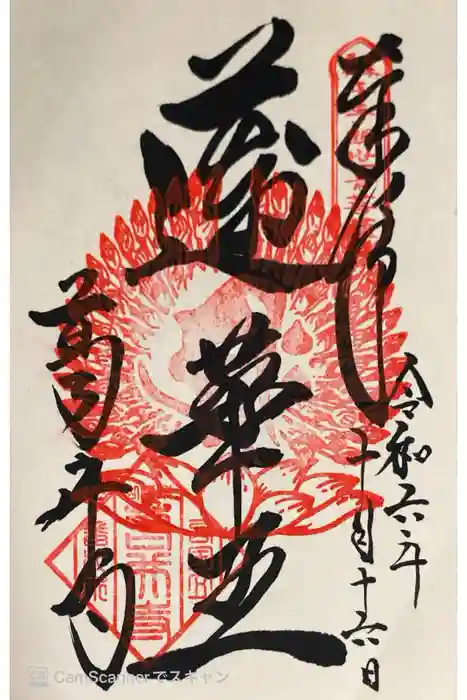 奉拝
令和六年
十月十六日
蓮華王
葛井寺
CamScanner でスキャン